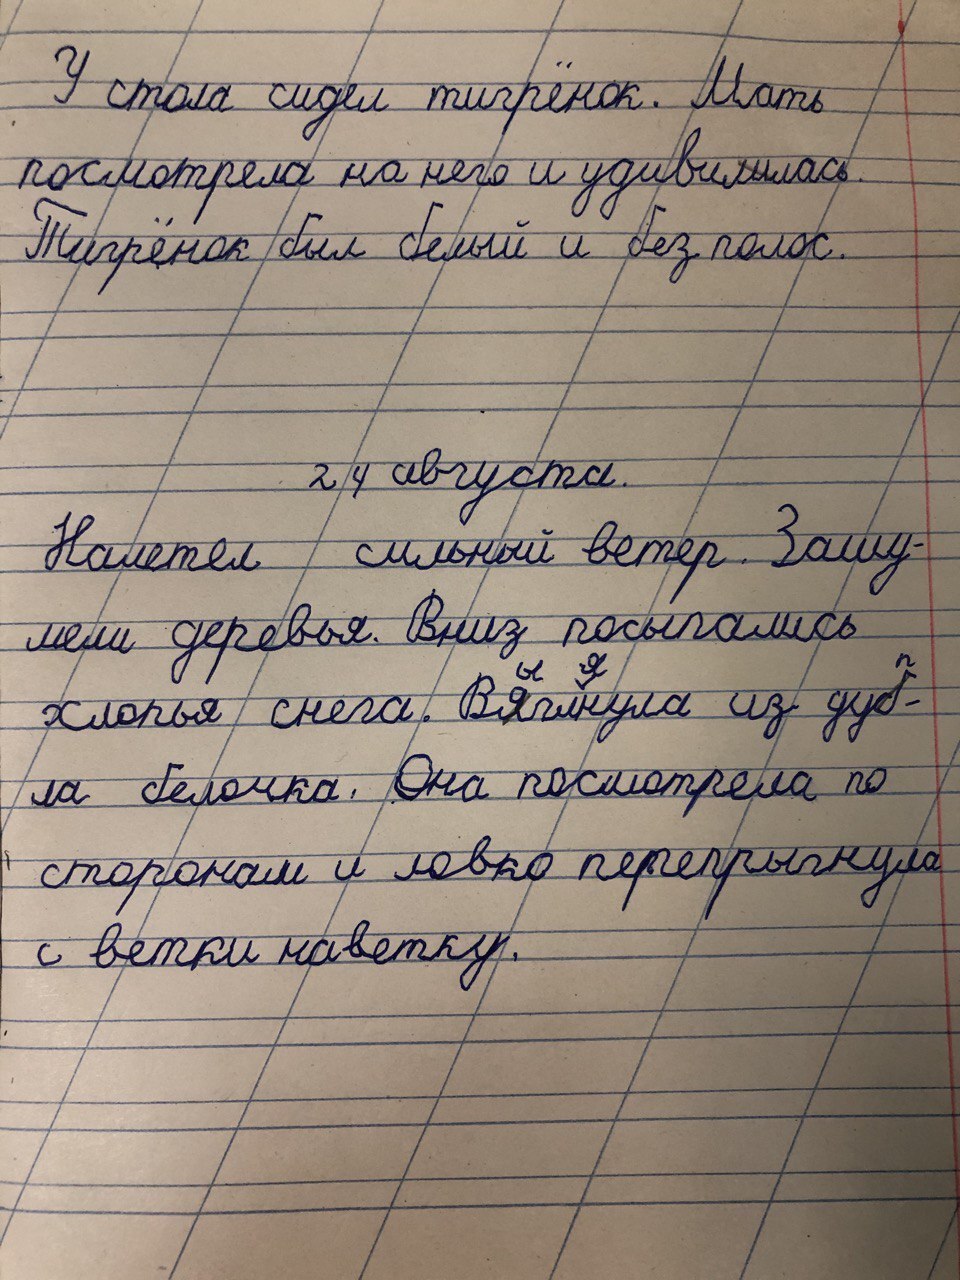 У стола сидел тигрёнок. Мать
посмотрела на него и удивилилась.
Тигрёнок был белый и без полос.
24 августа.
Налетел сильный ветер. Зашу-
мели деревья. Вниз посыпались
хлопья снега. Выглянула из дуп-
ла белочка. Она посмотрела по
сторонам и ловко перепрыгнула
с ветки наветку.